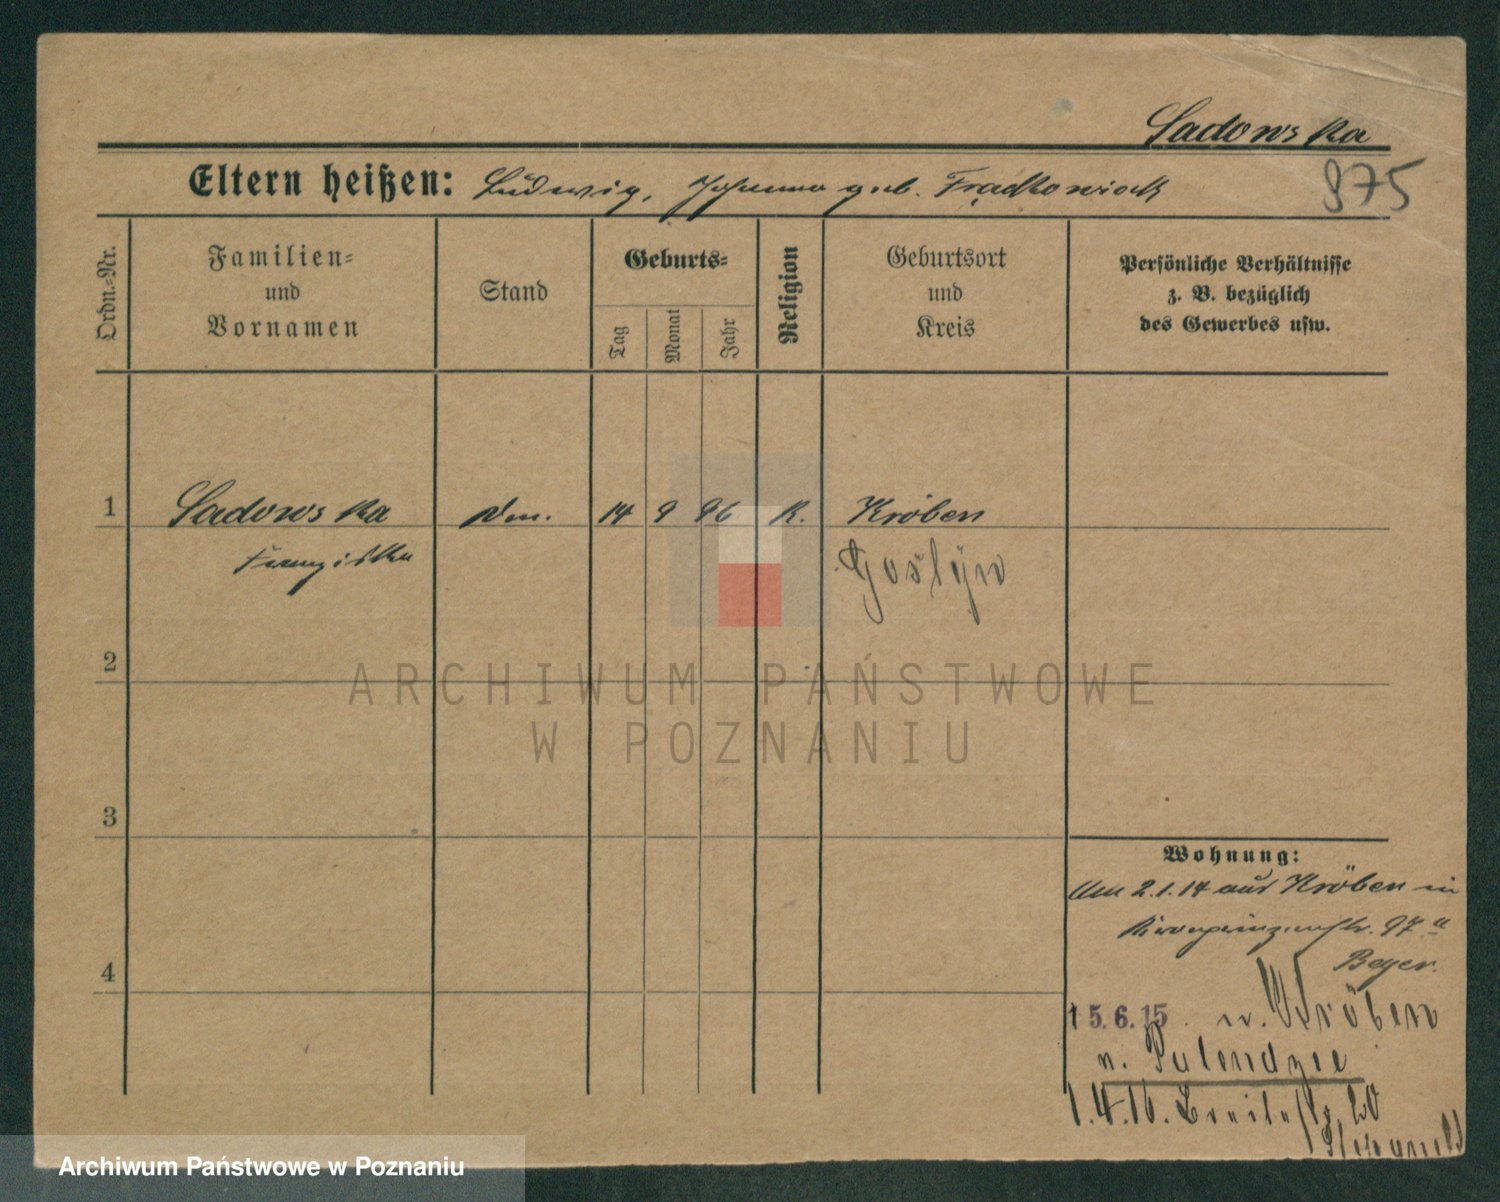 Sadowska
Eltern heißen: Ludwig, Johanna geb. Frąckowiak
975
Ordn.-Nr.
Familien-
und
Vornamen
Stand
Geburts-
Tag
Monat
Jahr
Religion
Geburtsort
und
Kreis
Persönliche Verhältnisse
z. B. bezüglich
des Gewerbes usw.
1 Sadowska 14 9 96 K. Kröben
Franziska Gostyn
2
ARCHIWUM PAŃSTWOWE
W POZNANIU
3
Wohnung:
Am 2.1.14 aus Kröben in
Kronprinzenstr. 97a
Beyer.
4
15.6.15. n. Kröben
n.
1.4.16. Breitestr. 20
Archiwum Państwowe w Poznaniu